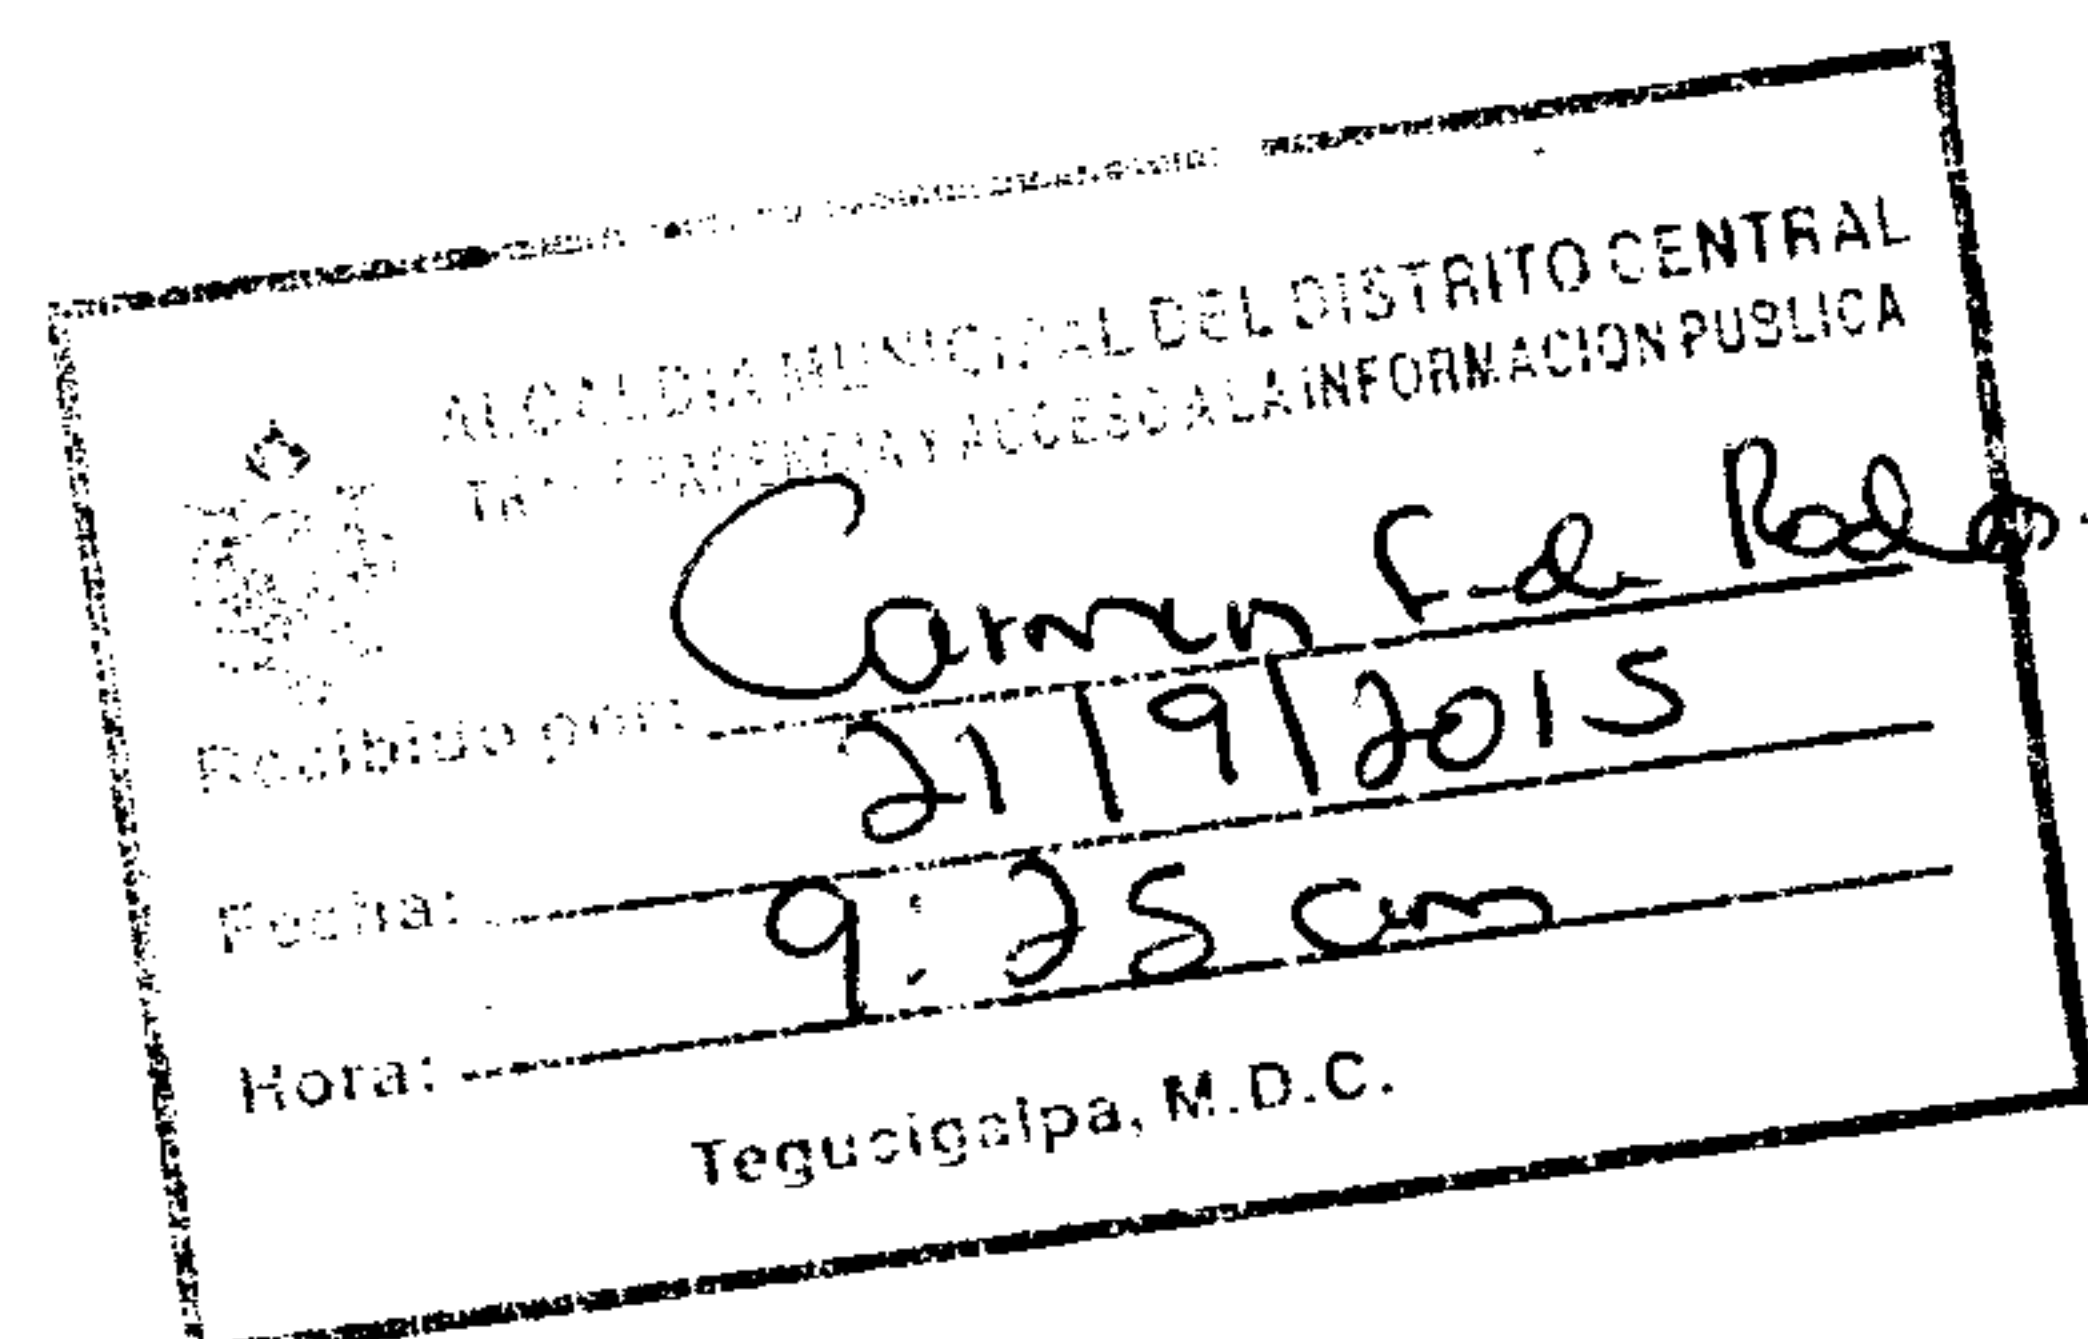 ALCALDIA MUNICIPAL DEL DISTRITO CENTRAL
TRANSPARENCIA Y ACCESO A LA INFORMACION PUBLICA
Recibido por: Carmen F. de
Fecha: 21/9/2015
Hora: 9:25 am
Tegucigalpa, M.D.C.